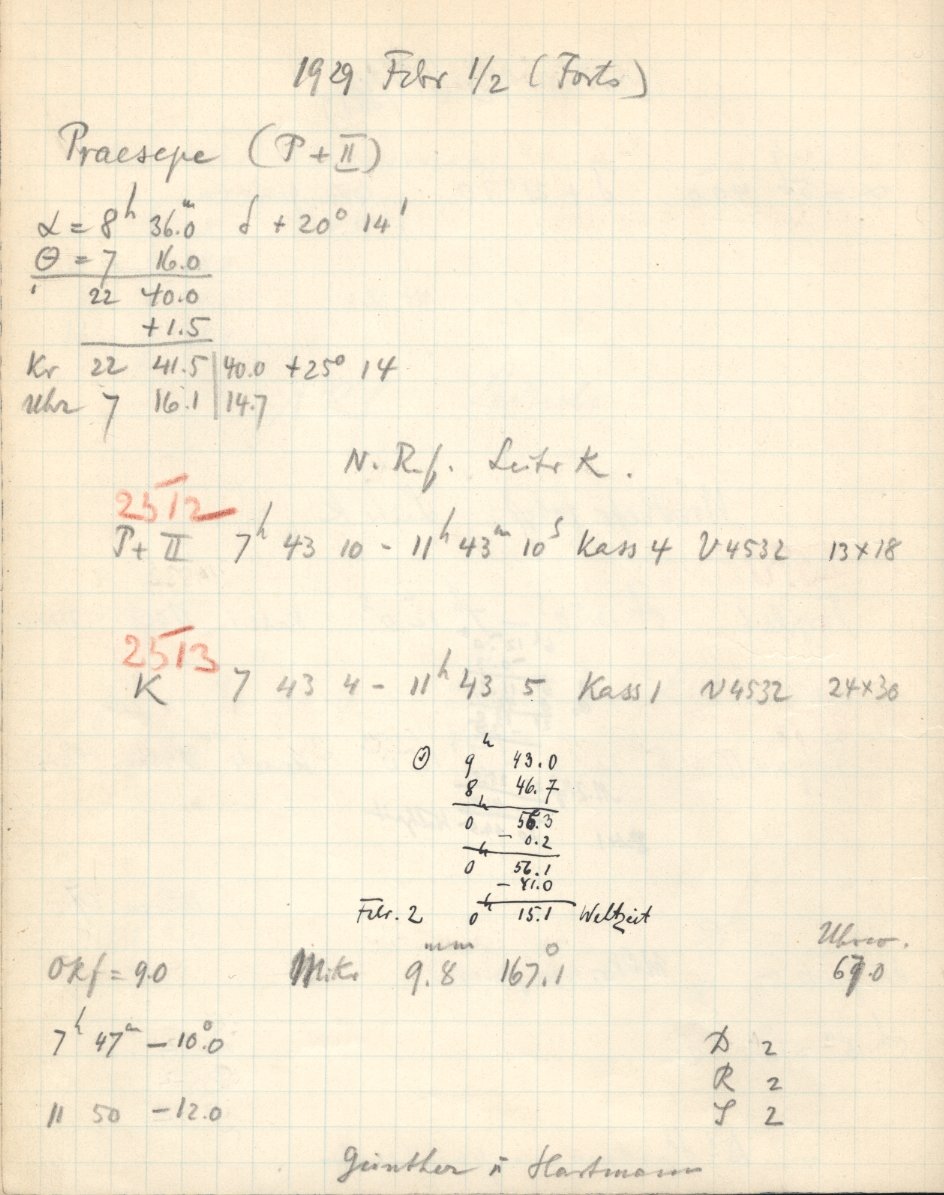 1929 Febr 1/2 (Forts)
Praesepe (P + II)
α = 8h 36.m0 δ + 20° 14'
Θ = 7 16.0
22 40.0
+1.5
Kr 22 41.5 | 40.0 +25° 14
Uhr 7 16.1 | 14.7
N. Rf. Leitr K.
2512
P+ II 7h 43 10 - 11h 43m 10s Kass 4 V 4532 13×18
2513
K 7 43 4 - 11h 43 5 Kass 1 V 4532 24×30
Θ 9h 43.0
8 46.7
0h 56.3
- 0.2
0h 56.1
- 41.0
Febr. 2 0h 15.1 Weltzeit
Okf = 9.0 Mikr 9.8mm 167.°1 Uhrw. 67.0
7h 47m - 10.°0 D 2
R 2
11 50 - 12.0 S 2
Günther u Hartmann